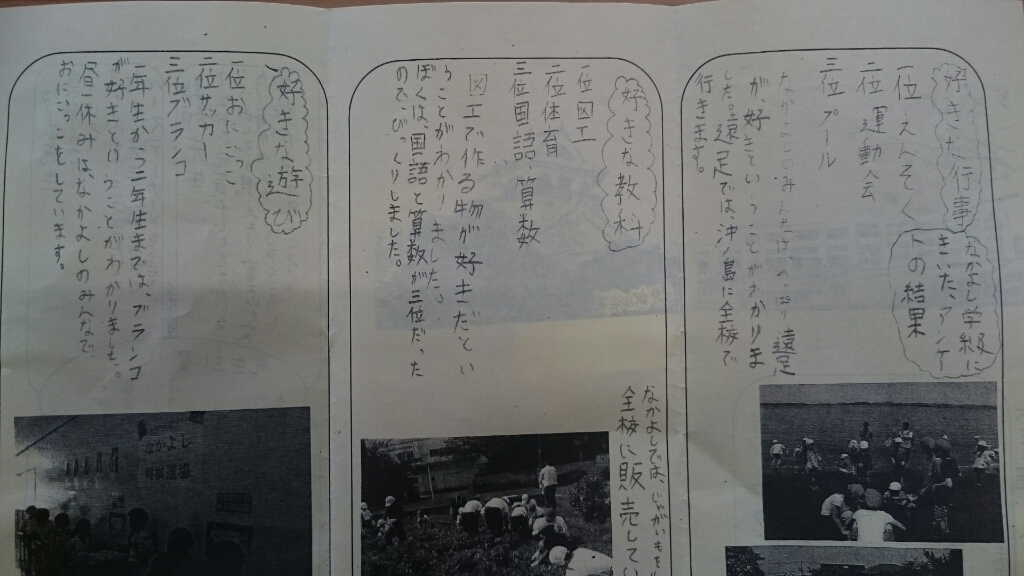 好きな行事
なかよし学級に
きいた、アンケー
トの結果
一位 えんそく
二位 運動会
三位 プール
なかよしのみんなは、やっぱり遠足
が、好きということがわかりま
した。遠足では、沖ノ島に全校で
行きます。
好きな教科
一位図工
二位体育
三位国語 算数
図工で作る物が好きだとい
うことがわかりました。
ぼくは、国語と算数が三位だった
のでびっくりしました。
なかよしでは、じゃがいもを
全校に販売してい
好きな遊び
一位おにごっこ
二位サッカー
三位ブランコ
一年生から二年生までは、ブランコ
が好きということがわかりました。
昼休みはなかよしのみんなで
おにごっこをしています。
なかよし